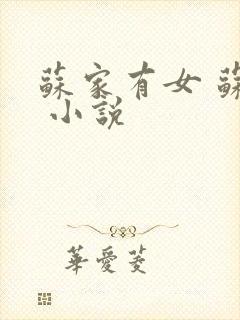 蘇家有女 蘇
小說
華愛菱